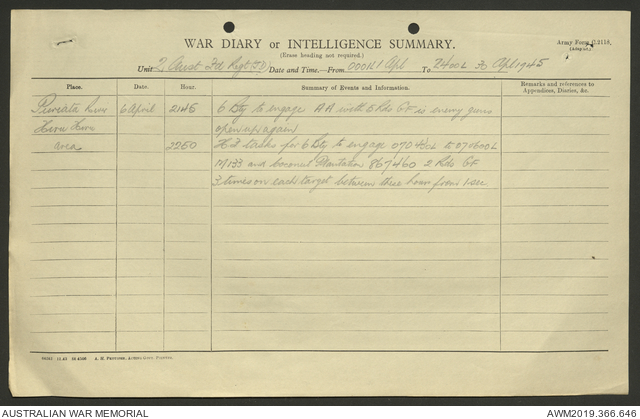 WAR DIARY OR INTELLIGENCE SUMMARY.
(Erase heading not required.)
Army Form C.2118.
(Adapted)
Unit 2 Aust Fd Regt Date and Time—From 0001 1 Apl To 2400L 30 Apl 1945
Place. Date. Hour. Summary of Events and Information. Remarks and references to Appendices, Diaries, &c.
Puriata River 6 April 2145 6 Bty to engage AA with 5 Rds GF if enemy guns
Hiru Hiru open up again
area 2250 HF tasks for 6 Bty to engage 070400L to 070600L
M133 and coconut Plantation 867460 2 Rds GF
3 times on each target between these hours from 1 sec
A. H. PETTIFER, ACTING GOVT. PRINTER.
AUSTRALIAN WAR MEMORIAL
AWM2019.366.646